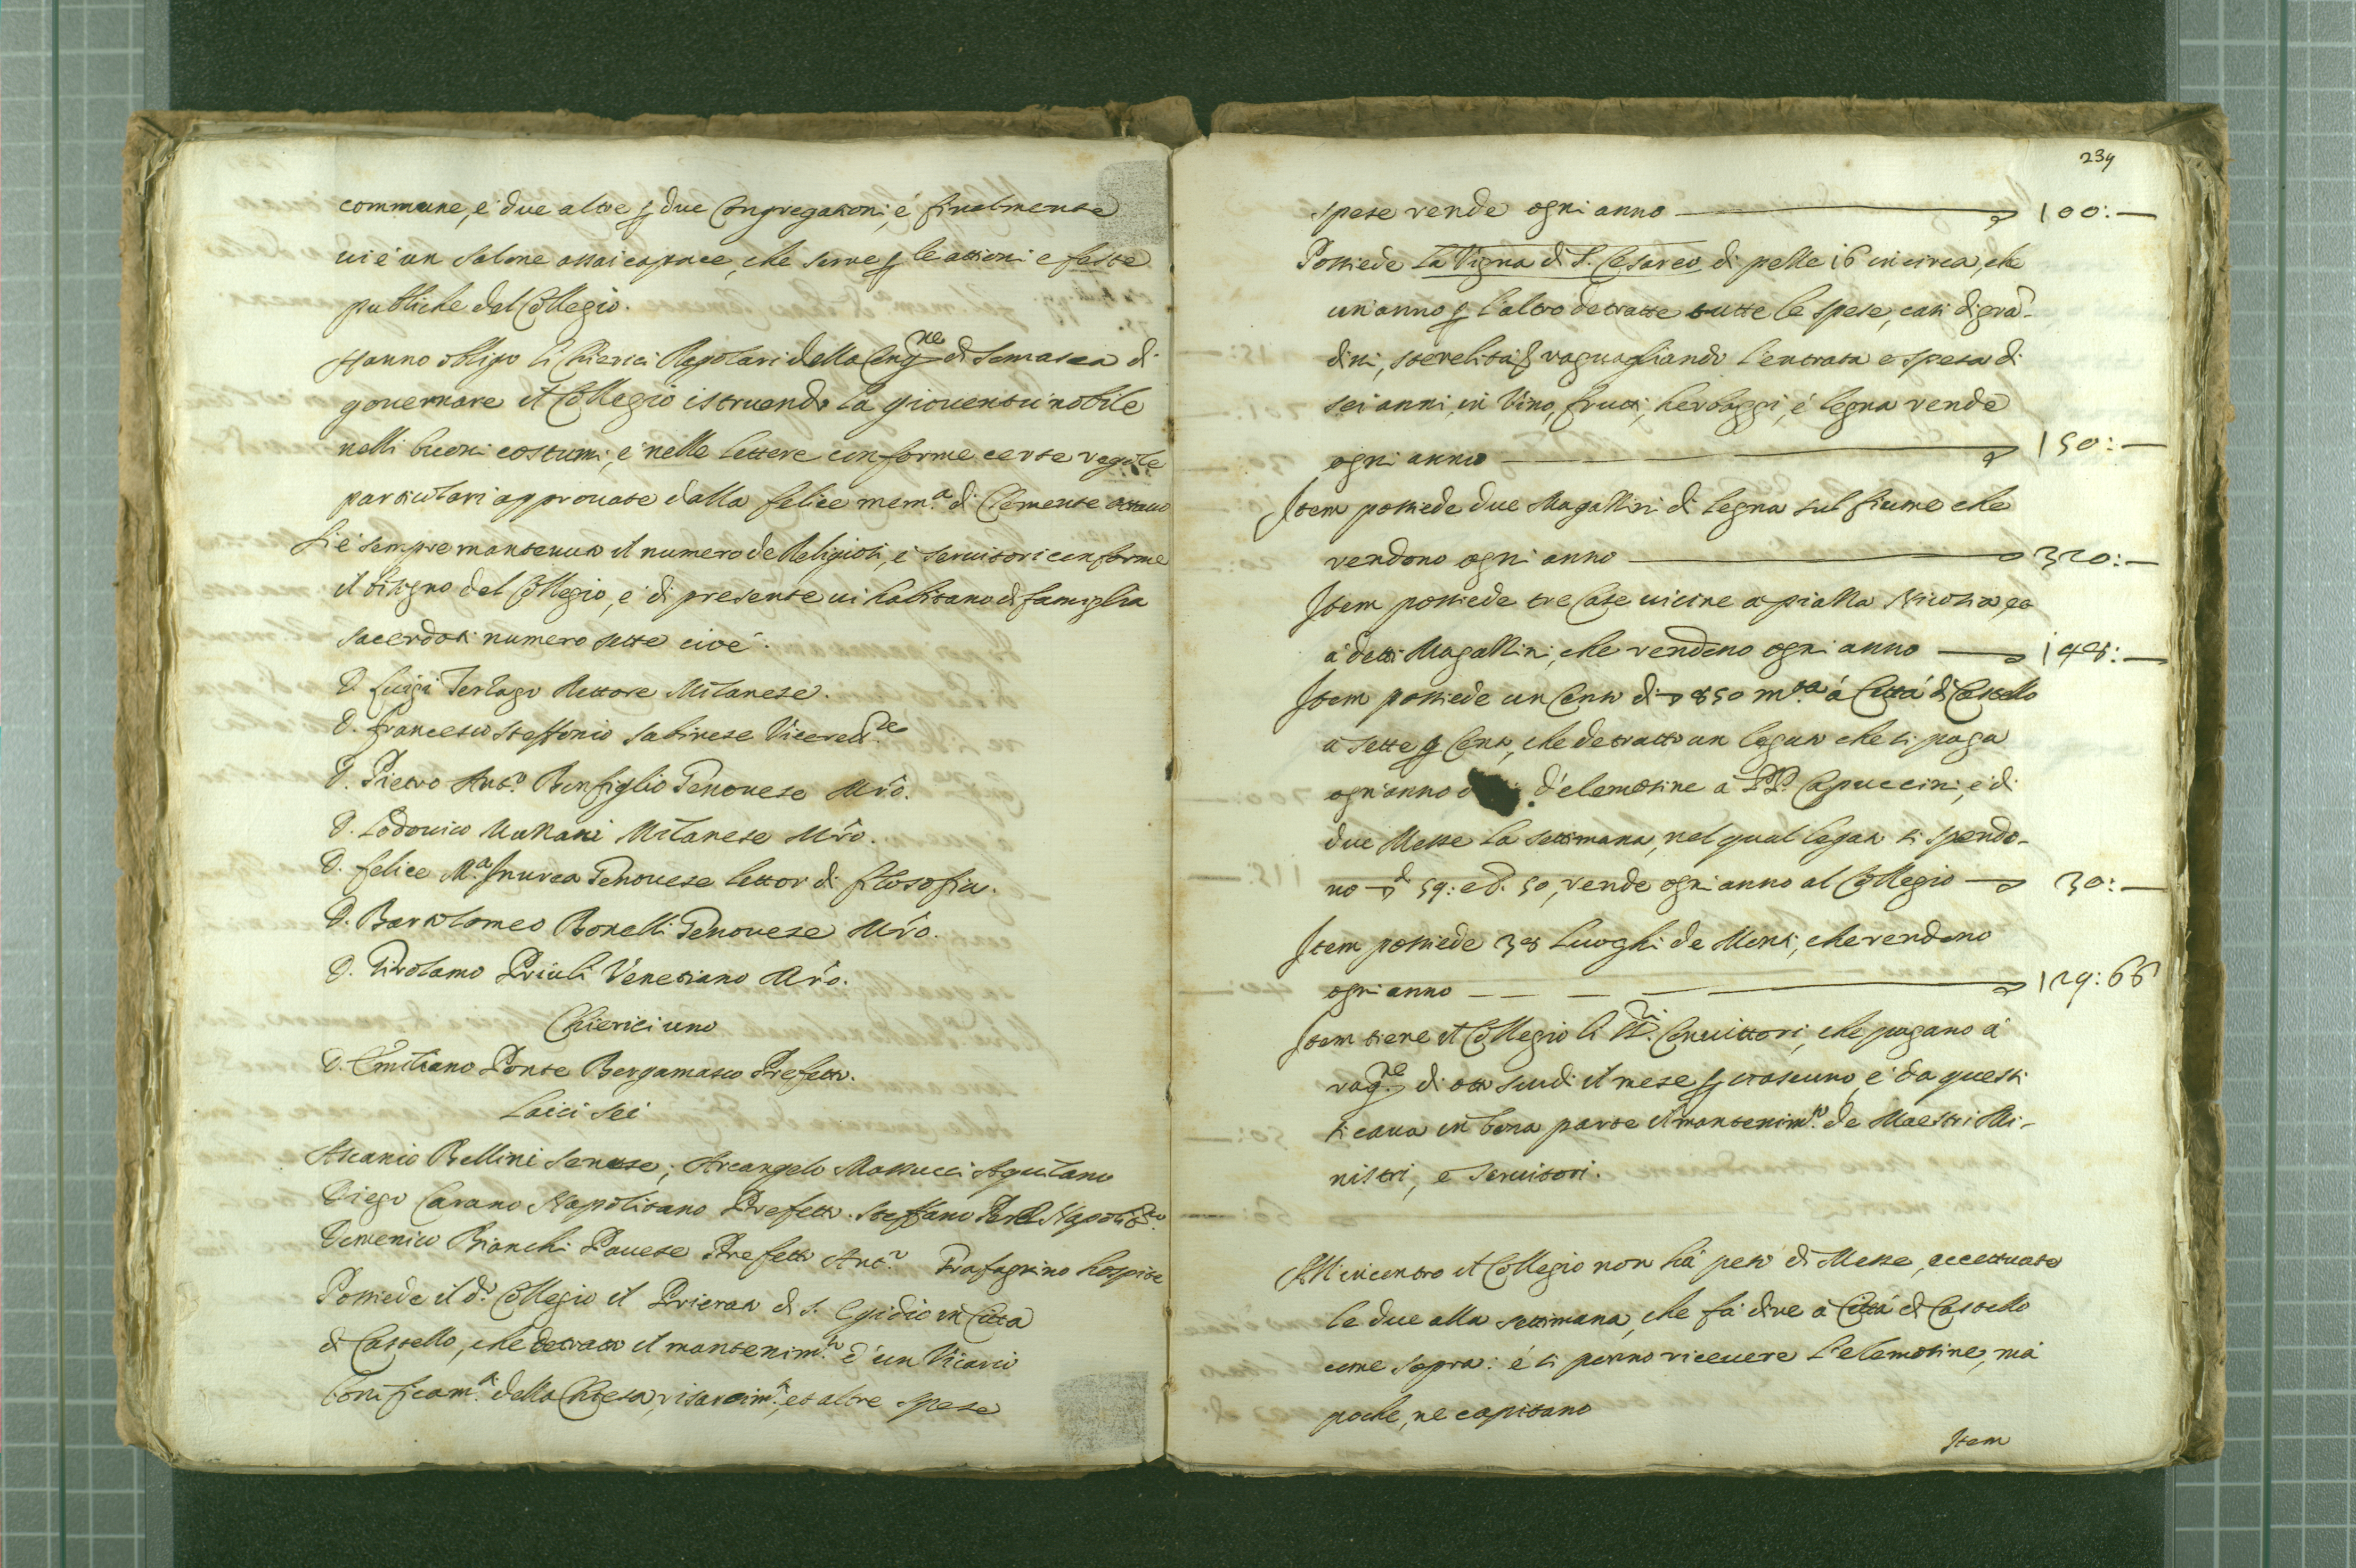 commune, e due altre p due Congregationi, é finalmente
vi é un salone assai capace, che serve p le attioni e feste
publiche del Collegio.
Hanno obligo li Chierici Regolari della Cong.ne di Somasca di
governare il Collegio istruendo la gioventù nobile
nelli buoni costumi, e nelle lettere conforme certe regole
particulari approvate dalla felice mem.a di Clemente ottavo
Si é sempre mantenuto il numero de Religiosi, é servitori conforme
il bisogno del Collegio, e di presente vi habitano di famiglia
sacerdoti numero sette cioé.
D. Luigi Rettore Milanese.
D. Francesco Steffonio Sabinese Viceret.re
D. Pietro Ant.o Bonfiglio Genovese Mro.
D. Lodovico Milanese Mro.
D. Felice M.a Inurea Genovese lettor di filosofia.
D. Bartolomeo Bonelli Genovese Mro.
D. Girolamo Priuli Venetiano Mro.
Chierici uno
D. Emiliano Ponte Bergamasco Prefetto.
Laici sei
Ascanio Bellini Senese; Arcangelo Massucci Aquilano
Diego Carano Napolitano Prefetto. Steffano Napolit.no
Domenico Bianchi Pavese Prefetto Ant.o Grafagnino hospite
Possiede il d.o Collegio il Priorato di S. Egidio in Città
di Castello, che detratto il mantenim.to d'un Vicario
bonificam.ti della Chiesa, risarcim.ti, et altre spese
239
spese rende ogni anno 100:—
Possiede la Vigna di S. Cesareo di pezze 16 in circa, che
un'anno p l'altro detratte tutte le spese, casi di grã-
dini, sterelità & raguagliando l'entrata e spesa di
sei anni, in Vino, frutti, herbaggi, é legna rende
ogni anno 150:—
Item possiede due Magazzini di legna sul fiume che
rendono ogni anno 320:—
Item possiede tre Case vicine a piazza Nicosia, et
a detti Magazzini, che rendono ogni anno 148:—
Item possiede un Censo di 850 m.ta á Città di Castello
a sette p Cento, che detratto un legato che si paga
ogn'anno d'elemosine a PP. Capuccini, e di
due Messe la settimana, nel qual legato si spendo-
no 59: e b. 50, rende ogni anno al Collegio 30:—
Item possiede 38 luoghi de Monti, che rendono
ogni anno 129:66
Item tiene il Collegio li SS.ri Convittori, che pagano á
rag.ne di otto scudi il mese p ciascuno, é da questi
si cava in bona parte il mantenim.to de Maestri Mi-
nistri, e Servitori.
All'incontro il Collegio non há peso di Messe, eccettuate
le due alla settimana, che fá dire á Città di Castello
come sopra: é si ponno ricevere l'elemosine, má
poche, ne capitano
Item